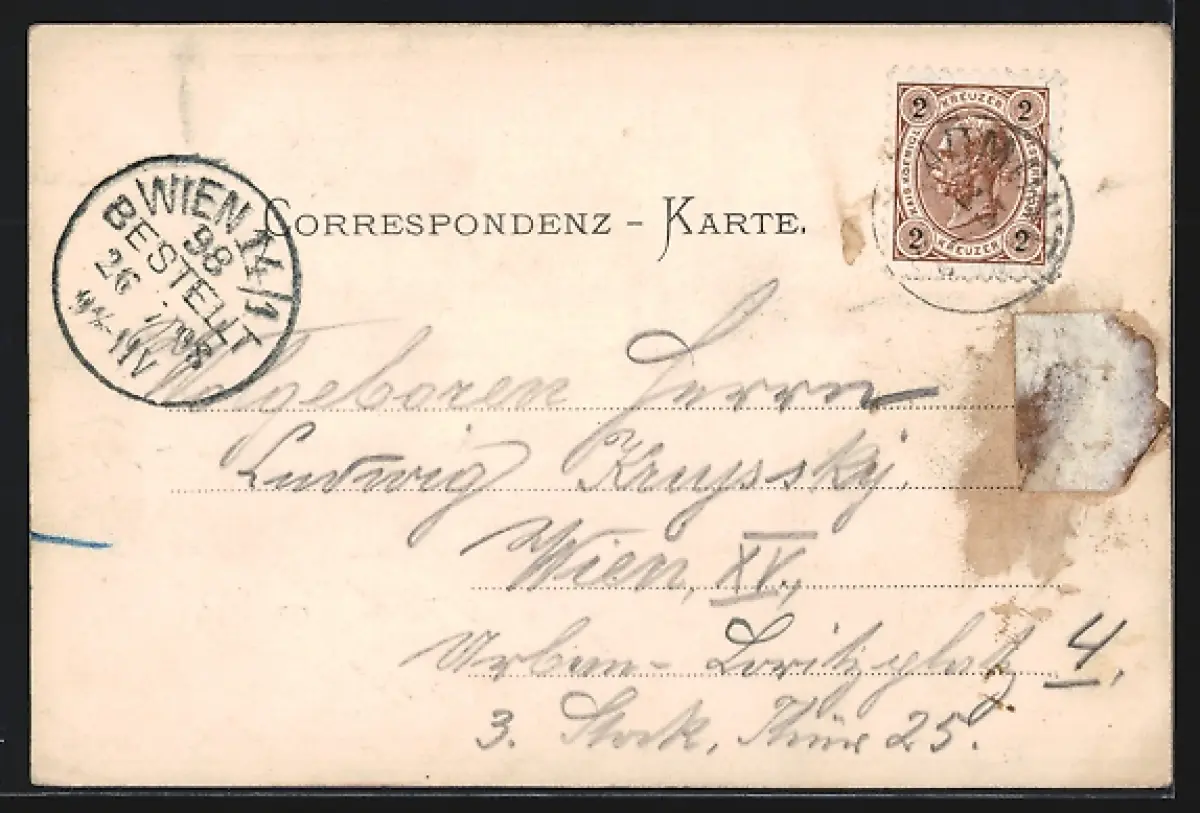 2 KREUZER 2
2 KREUZER 2
WIEN 14/1
98
BESTELLT
26
CORRESPONDENZ - KARTE.
Wolgeboren Herrn
Ludwig
Wien, XV.,
Urban-Loritzplatz 4,
3. Stock, Thür 25.